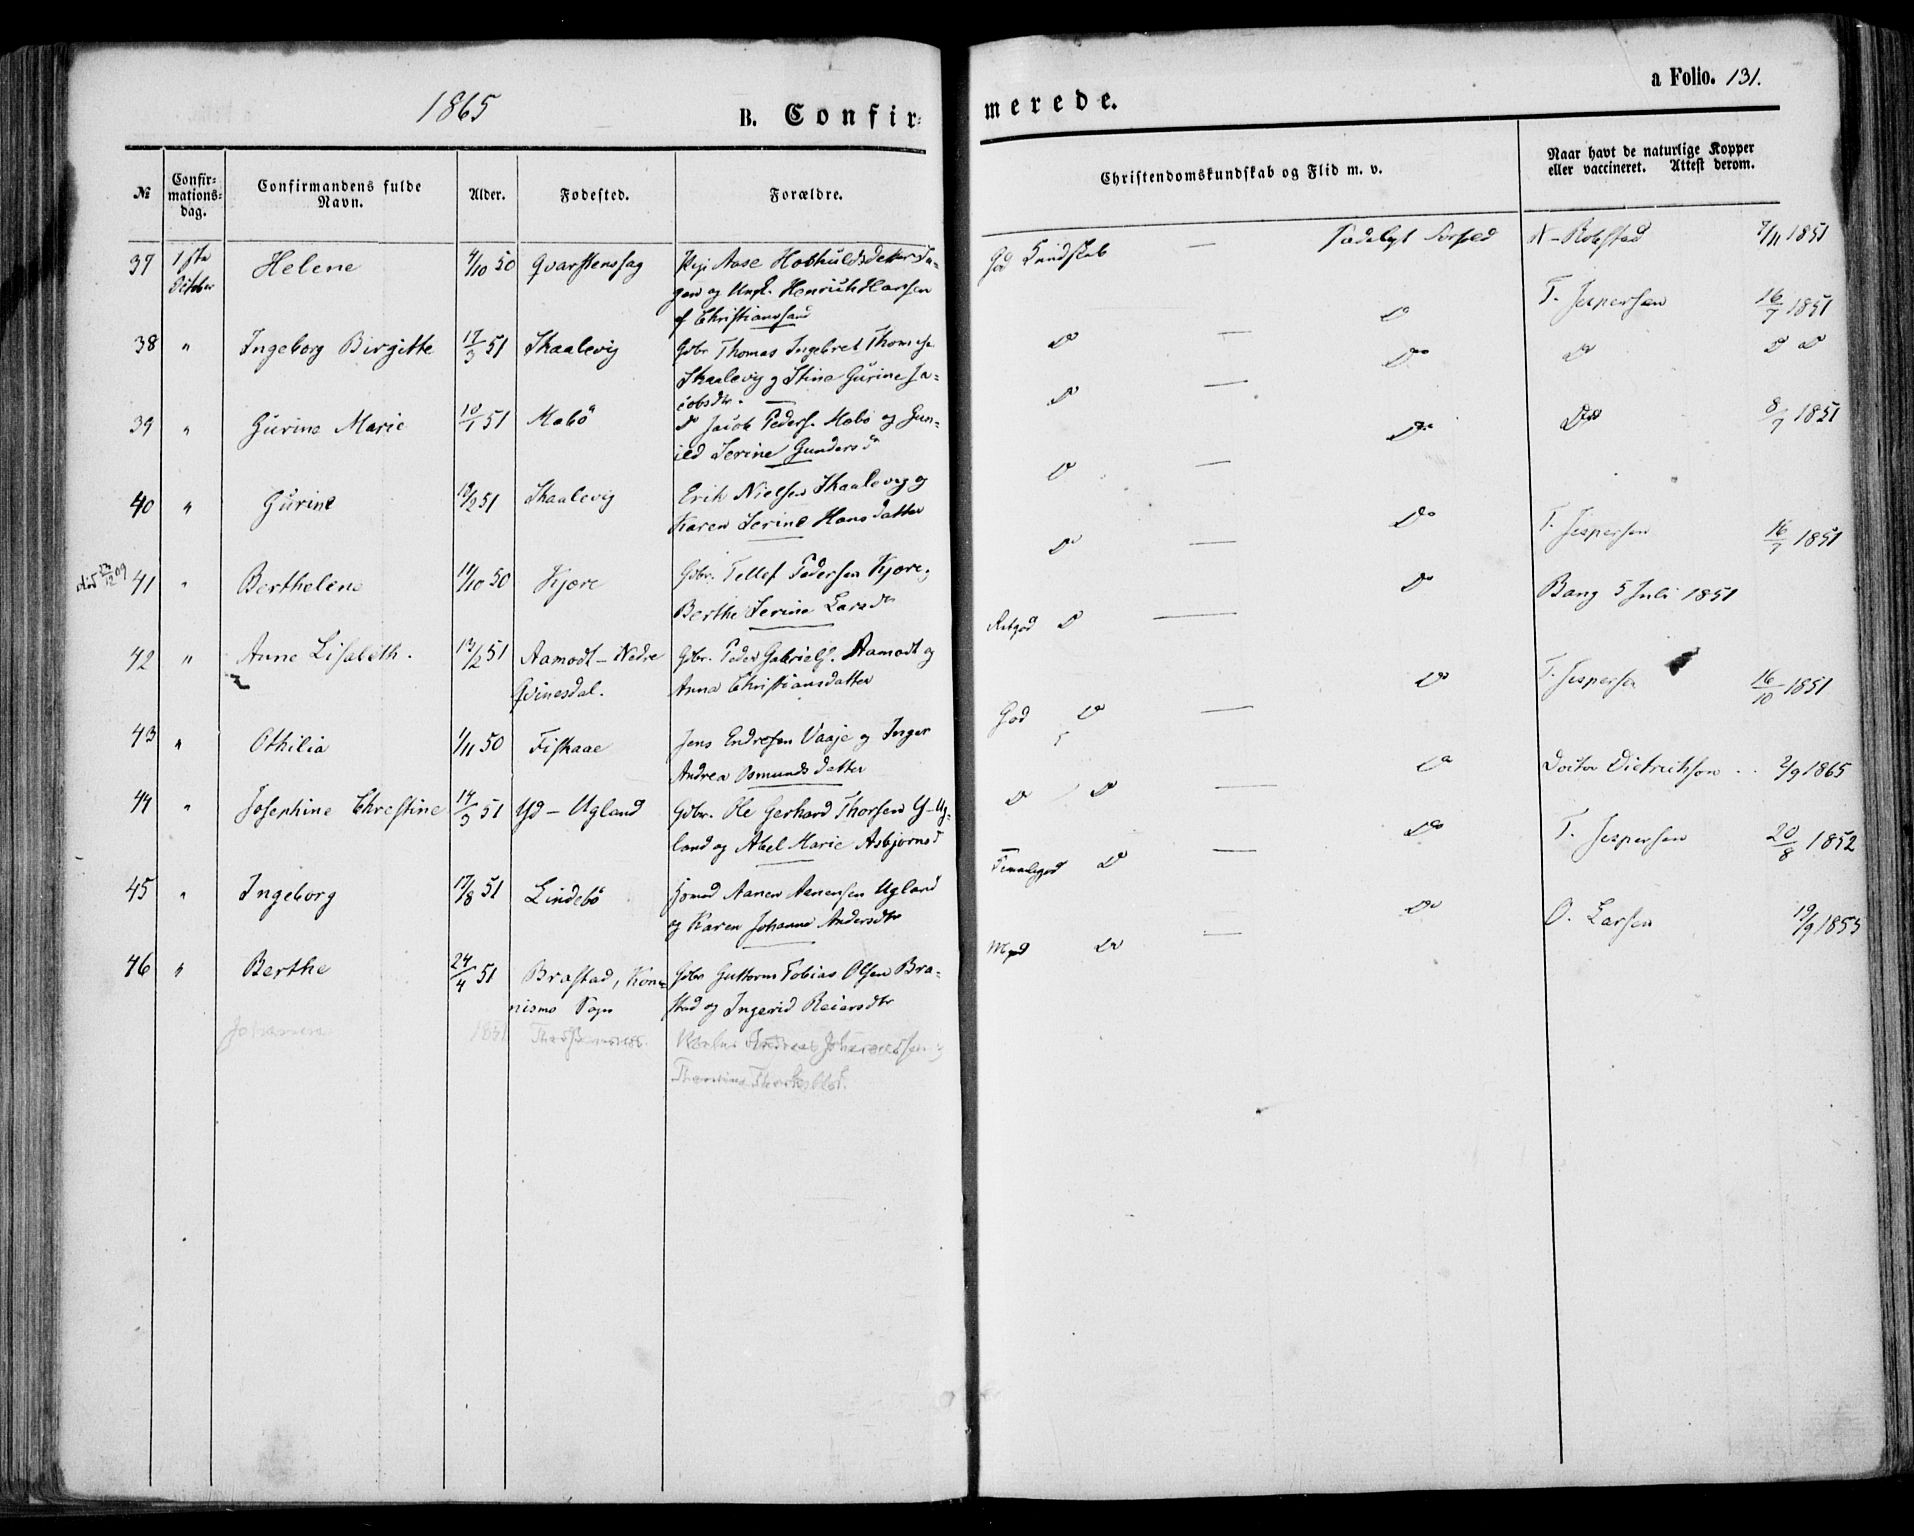 1865
B. Confir-
merede.
a Folio. 131.
№
Confir-
mations-
dag.
Confirmandens fulde
Navn.
Alder.
Fødested.
Forældre.
Christendomskundskab og Flid m. v.
Naar havt de naturlige Kopper
eller vaccineret. Attest derom.
37 1ste Helene 4/10 50 Qvarstenssag Pige Aase
October og Ungk. Henrich Hansen
af Christianssand
God Kundskab — Sædeligt Forhold 7/11 1851
38 " Ingeborg Birgitte 17/3 51 Skaalevig Gbr. Thomas Ingebret Thomes.
Skaalevig og Stine Gurine Ja-
cobsdtr.
Do — Do T. Jespersen 16/7 1851
39 " Gurine Marie 10/1 51 Mebö Do Jacob Peders. Mebö og Gun-
ild Serine Gundersd
Do — Do Do Do Do
40 " Gurine 12/2 51 Skaalevig Erik Nielsen Skaalevig og
Karen Serine Hansdatter
Do — Do Do 8/7 1851
død 09 41 " Berthelene 14/10 50 Kjære Gbr. Tellef Pedersen Kjære og
Berthe Serine Larsdtr
Do — Do T. Jespersen 16/7 1851
42 " Anne Lisabeth. 13/2 51 Aamodt – Nedre Gbr. Peder Gabriels. Aamodt og
Qvinesdal. Anna Christiansdatter
Do — Do Bang 5 Juli 1851
43 " Othilia 1/11 50 Fiskaae Jens Endresen Vaaje og Inger
Andrea Osmundsdatter
God Do — Do T. Jespersen 16/10 1851
44 " Josephine Chrestine 14/3 51 Yd – Ugland Gbr. Ole Gerhard Thorsen Y-Ug-
land og Abel Marie Asbjørnsd
Do Do — Do Doctor Dietrichson 2/9 1865
45 " Ingeborg 17/8 51 Lindebö Aanen Aanensen Ugland
og Karen Johanne Andersdtr
Temmeliggod Do — Do T. Jespersen 20/8 1852
46 " Berthe 24/4 51 Brastad, Gbr Guttorm Tobias Olsen Bra-
Sogn stad og Ingerid Reiersdtr
Mgod Do — Do O. Larsen 19/9 1855
1851 Andreas Johannessen